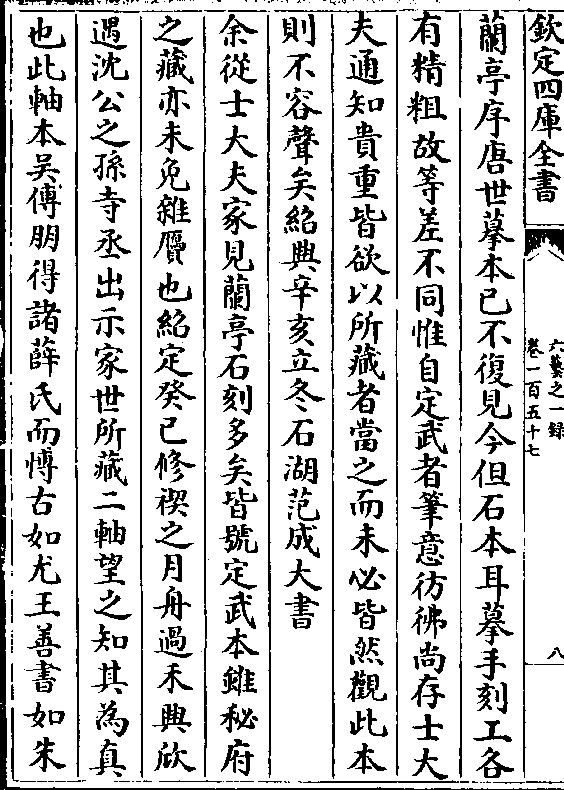 欽定四庫全書
六藝之一録
卷一百五十七
八
蘭亭序唐世摹本已不復見今但石本耳摹手刻工各
有精粗故等差不同惟自定武者筆意彷彿尚存士大
夫通知貴重皆欲以所藏者當之而未必皆然觀此本
則不容聲矣紹興辛亥立冬石湖范成大書
余從士大夫家見蘭亭石刻多矣皆號定武本雖秘府
之藏亦未免雜贗也紹定癸巳修禊之月舟過禾興欣
遇沈公之孫寺丞出示家世所藏二軸望之知其為真
也此軸本吳傅朋得諸薛氏而愽古如尤王善書如朱